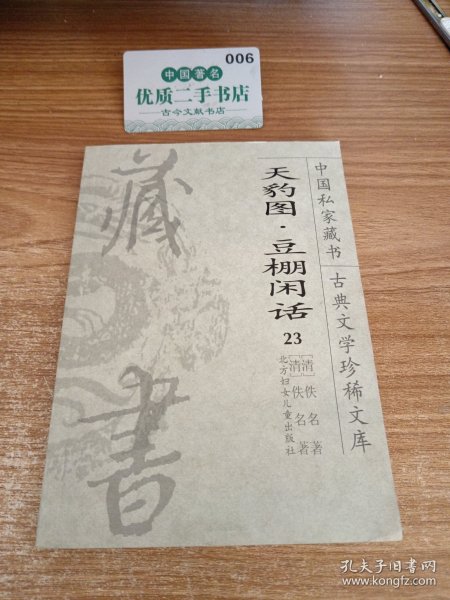 006
中国著名
优质二手书店
古今文献书店
中国私家藏书
古典文学珍稀文库
天豹图·豆棚闲话
23
[清]佚名 著
[清]佚名 著
北方妇女儿童出版社
藏
書
孔夫子旧书网
www.kongfz.com